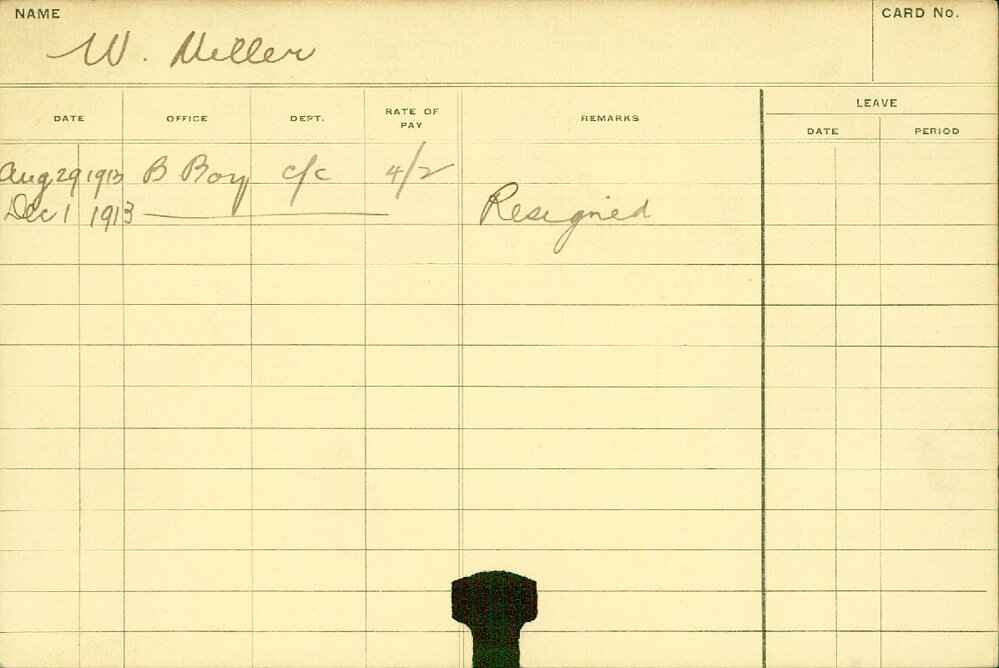 NAME
CARD No.
W. Neller
DATE OFFICE DEPT. RATE OF PAY REMARKS LEAVE
DATE PERIOD
Aug 29 1913 B Boy c/c 4/2
Dec 1 1913 Resigned